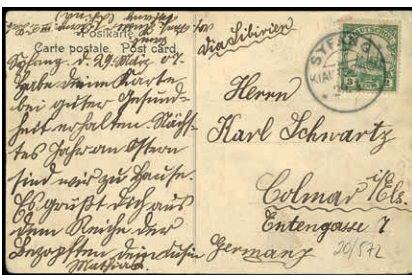 Postkarte
Carte postale. Post card
Syfang, d. 29. März 07.
Habe deine Karte
bei guter Gesund-
heit erhalten Nächs-
tes Jahr an Ostern
sind wir zu Hause.
Es grüßt Dich aus
dem Reiche der
Bezopften dein
Mathias
via Sibirien
SYFANG
KIAUTSCHOU
Herrn
Karl Schwartz
Colmar i/Els.
Entengasse 7
Germany
20/572